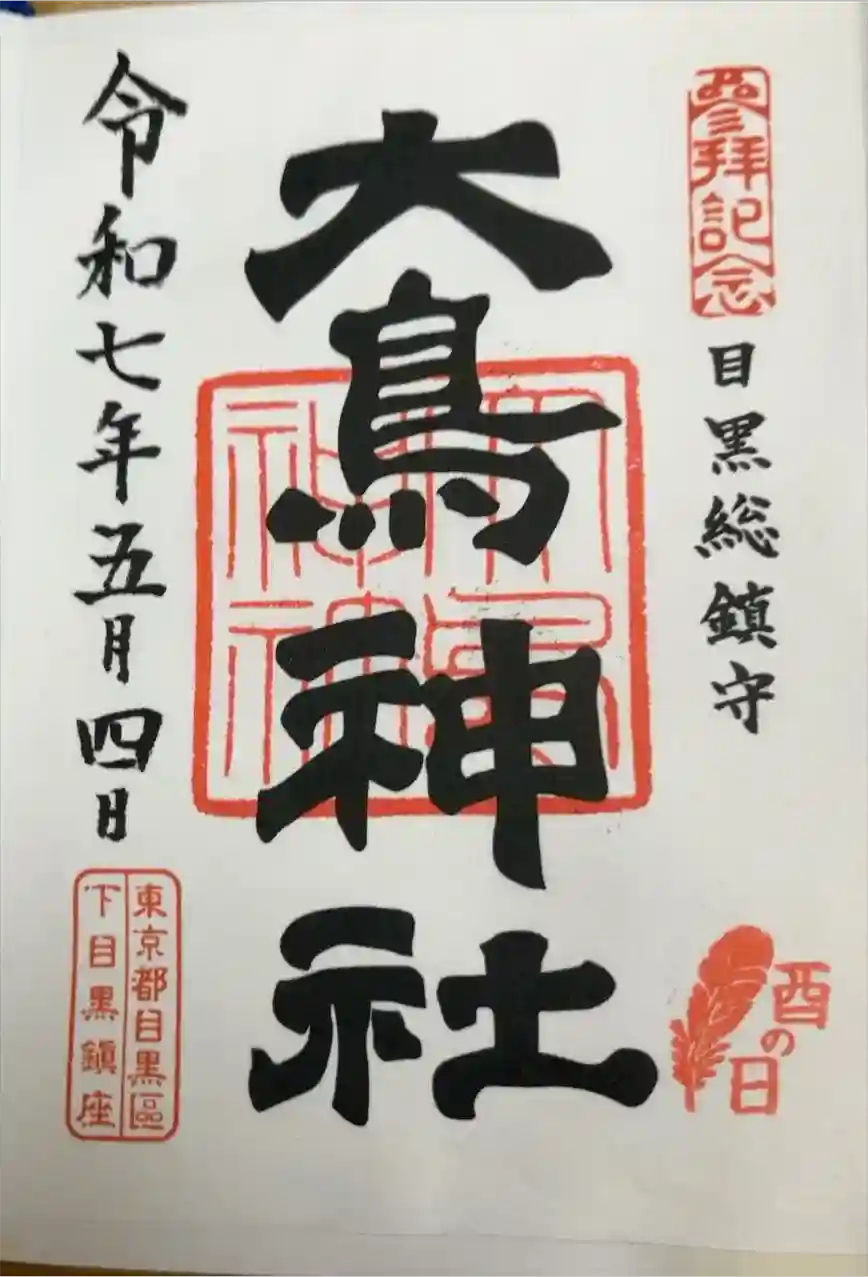 參拜記念
目黒総鎮守
酉の日
大鳥神社
大鳥神社
令和七年五月四日
東京都目黒區
下目黒鎮座